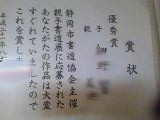 賞状
優秀賞
親子
静岡市書道協会主催
親子書道展に応募された
あなたがたの作品は大変
すぐれていましたので
これを賞し
平成二十